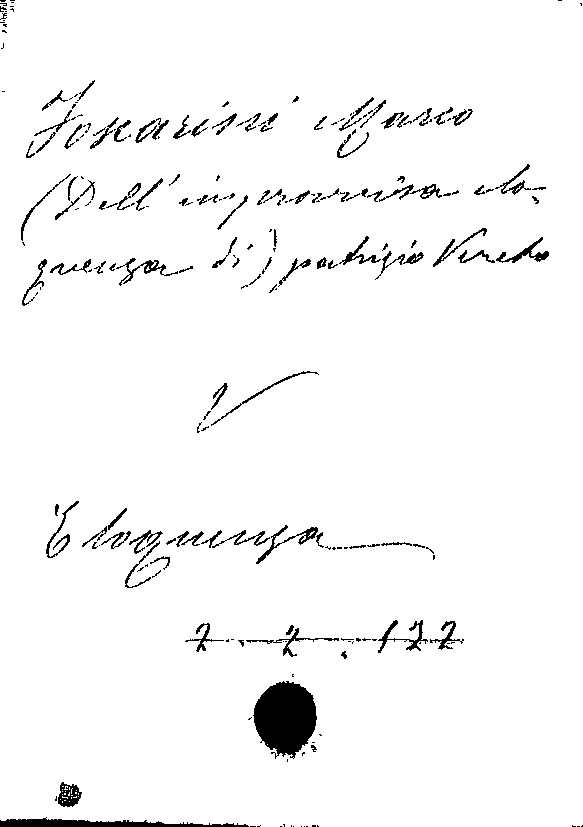 Foscarini Marco
(Dell' improvvisa elo-
quenza di) patrizio Veneto
V
Eloquenza
2. 2. 122